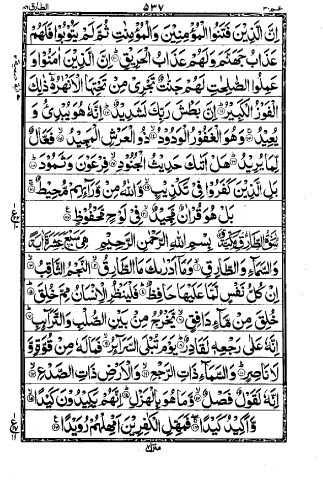 الطارق ٨٦ ٥٣٧ عمّ ٣٠
اِنَّ الَّذِيْنَ فَتَنُوا الْمُؤْمِنِيْنَ وَالْمُؤْمِنٰتِ ثُمَّ لَمْ يَتُوْبُوْا فَلَهُمْ
عَذَابُ جَهَنَّمَ وَلَهُمْ عَذَابُ الْحَرِيْقِ اِنَّ الَّذِيْنَ اٰمَنُوْا وَ
عَمِلُوا الصّٰلِحٰتِ لَهُمْ جَنّٰتٌ تَجْرِيْ مِنْ تَحْتِهَا الْاَنْهٰرُ ذٰلِكَ
الْفَوْزُ الْكَبِيْرُ اِنَّ بَطْشَ رَبِّكَ لَشَدِيْدٌ اِنَّهٗ هُوَ يُبْدِئُ وَ
يُعِيْدُ وَهُوَ الْغَفُوْرُ الْوَدُوْدُ ذُو الْعَرْشِ الْمَجِيْدُ فَعَّالٌ
لِّمَا يُرِيْدُ هَلْ اَتٰىكَ حَدِيْثُ الْجُنُوْدِ فِرْعَوْنَ وَثَمُوْدَ
بَلِ الَّذِيْنَ كَفَرُوْا فِيْ تَكْذِيْبٍ وَّاللّٰهُ مِنْ وَّرَآئِهِمْ مُّحِيْطٌ
بَلْ هُوَ قُرْاٰنٌ مَّجِيْدٌ فِيْ لَوْحٍ مَّحْفُوْظٍ
سُوْرَةُ الطَّارِقِ مَكِّيَّةٌ بِسْمِ اللّٰهِ الرَّحْمٰنِ الرَّحِيْمِ هِيَ سَبْعَ عَشْرَةَ اٰيَةً
وَالسَّمَآءِ وَالطَّارِقِ وَمَآ اَدْرٰىكَ مَا الطَّارِقُ النَّجْمُ الثَّاقِبُ
اِنْ كُلُّ نَفْسٍ لَّمَّا عَلَيْهَا حَافِظٌ فَلْيَنْظُرِ الْاِنْسَانُ مِمَّ خُلِقَ
خُلِقَ مِنْ مَّآءٍ دَافِقٍ يَّخْرُجُ مِنْۢ بَيْنِ الصُّلْبِ وَالتَّرَآئِبِ
اِنَّهٗ عَلٰى رَجْعِهٖ لَقَادِرٌ يَوْمَ تُبْلَى السَّرَآئِرُ فَمَا لَهٗ مِنْ قُوَّةٍ وَّ
لَا نَاصِرٍ وَالسَّمَآءِ ذَاتِ الرَّجْعِ وَالْاَرْضِ ذَاتِ الصَّدْعِ
اِنَّهٗ لَقَوْلٌ فَصْلٌ وَّمَا هُوَ بِالْهَزْلِ اِنَّهُمْ يَكِيْدُوْنَ كَيْدًا
وَّاَكِيْدُ كَيْدًا فَمَهِّلِ الْكٰفِرِيْنَ اَمْهِلْهُمْ رُوَيْدًا
منزل